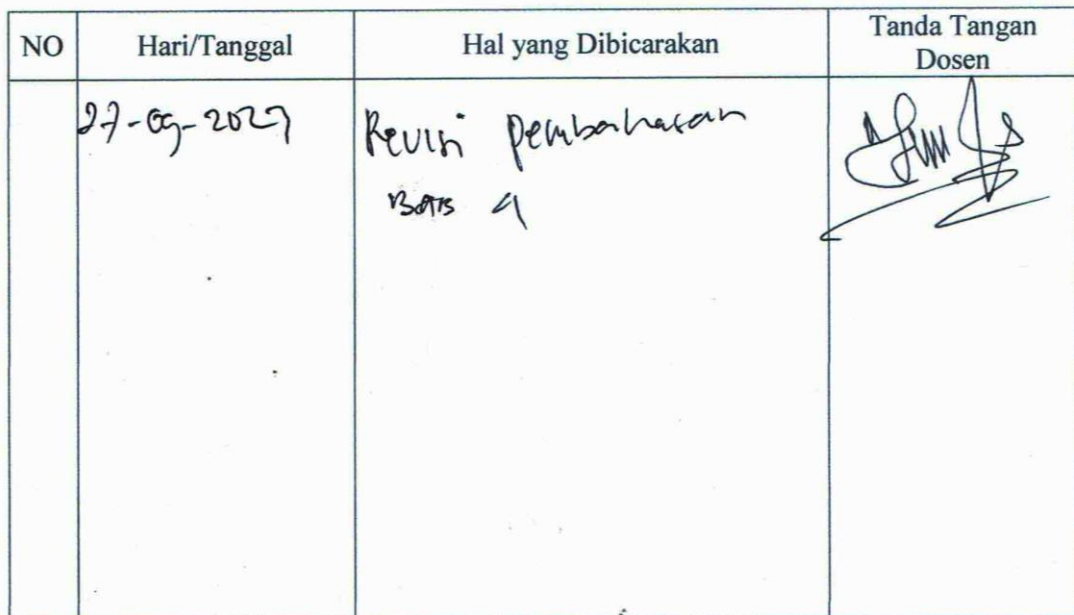 NO Hari/Tanggal Hal yang Dibicarakan Tanda Tangan
Dosen
Revisi pembahasan
Bab 4